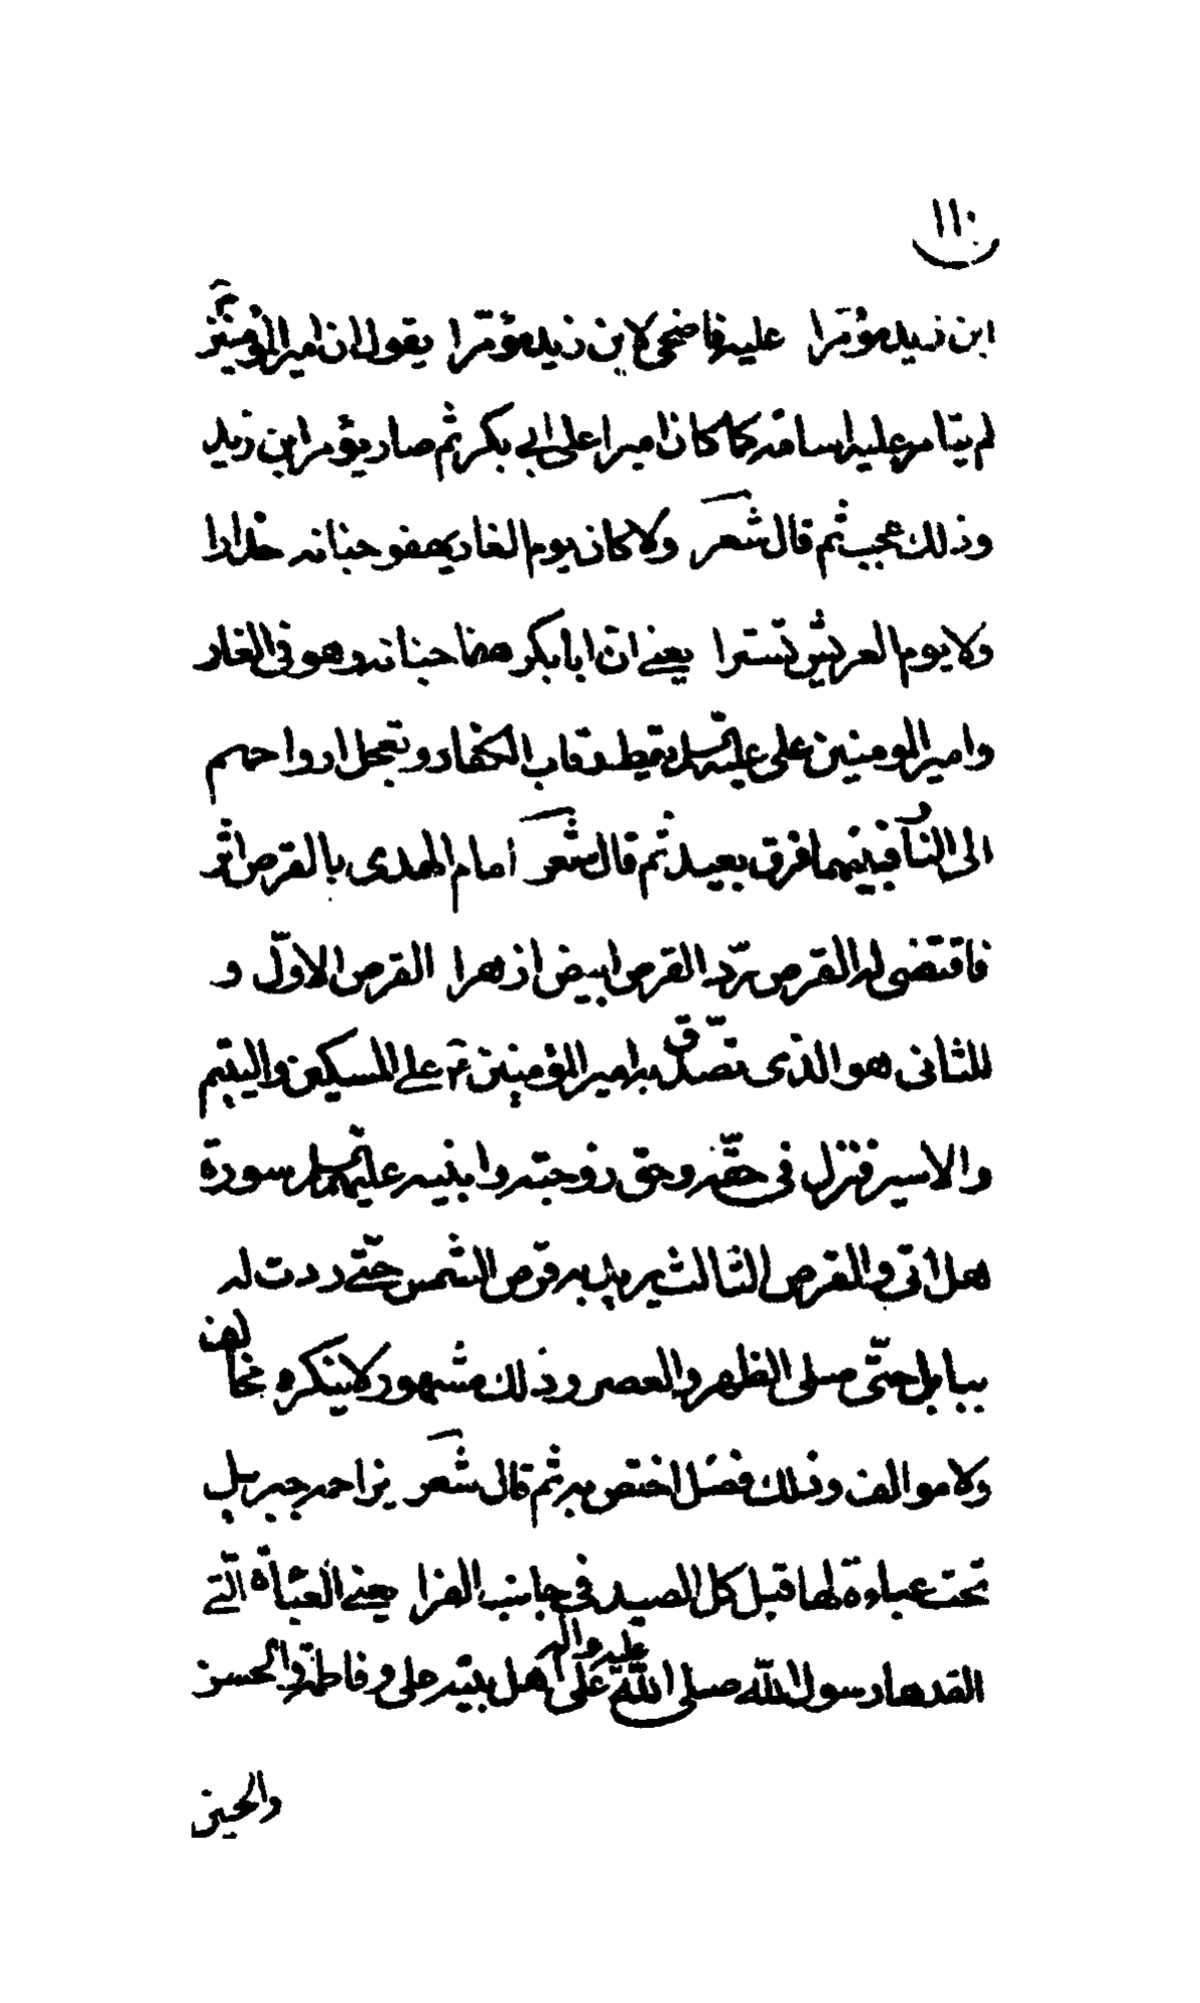 ١١٠
ابن زيد مؤمرا عليه فاضحى لابن زيد مؤمّرا يقول ان امير المؤمنين ع
لم يتامر عليه اسامة كما كان اميرا على ابي بكر ثم صار يؤمر ابن زيد
وذلك عجب ثم قال شعر ولا كان يوم الغار يهفو جنانه حذارا
ولا يوم العريش تسترا يعنے ان ابا بكر هفا جنانه وهو فى الغار
وامير المومنين على عليه السلم يقط رقاب الكفار ويعجل ارواحهم
الى النار فبينهما فرق بعيد ثم قال شعر امام الهدى بالقرص اثر
فاقتضى له القرص ردّ القرص ابيض ازهرا القرص الاوّل و
للثانى هو الذى تصدّق به امير المؤمنين ع علے المسكين واليتيم
والاسير فنزل فى حقّه وحق زوجته وابنيه عليهم السلم سورة
هل اتى والقرص الثالث يريد به قرص الشمس حتّے ردت له
ببابل حتّى صلى الظهر والعصر وذلك مشهور لا ينكره مخالف
ولا موالف وذلك فضل اختص به ثم قال شعر يزاحمه جبريل
تحت عباءة لها قيل كل الصيد فى جانب الفرا يعنے العباة الّتے
القدها رسول اللّه صلى اللّه عليه واله على اهل بيته على وفاطمة والحسن
والحسين